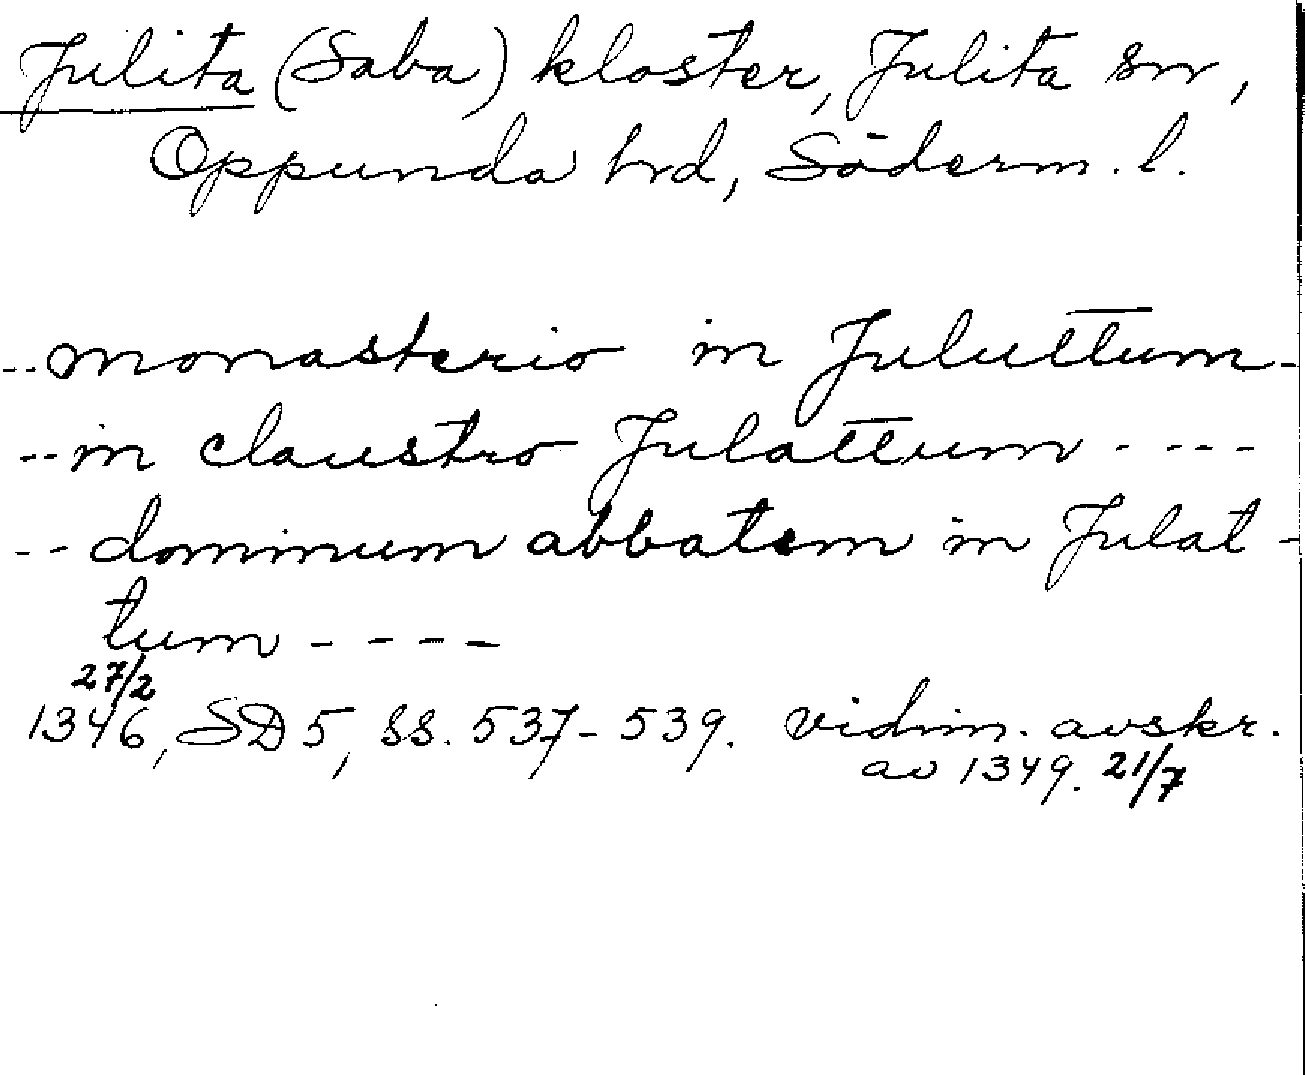 Julita (Saba) kloster, Julita sn,
Oppunda hrd, Söderm. l.
--monasterio in Juluttum-
--in claustro Julattum----
--dominum abbatem in Julat-
tum----
27/2
1346, SD 5, ss. 537-539. vidim. avskr.
av 1349. 21/7